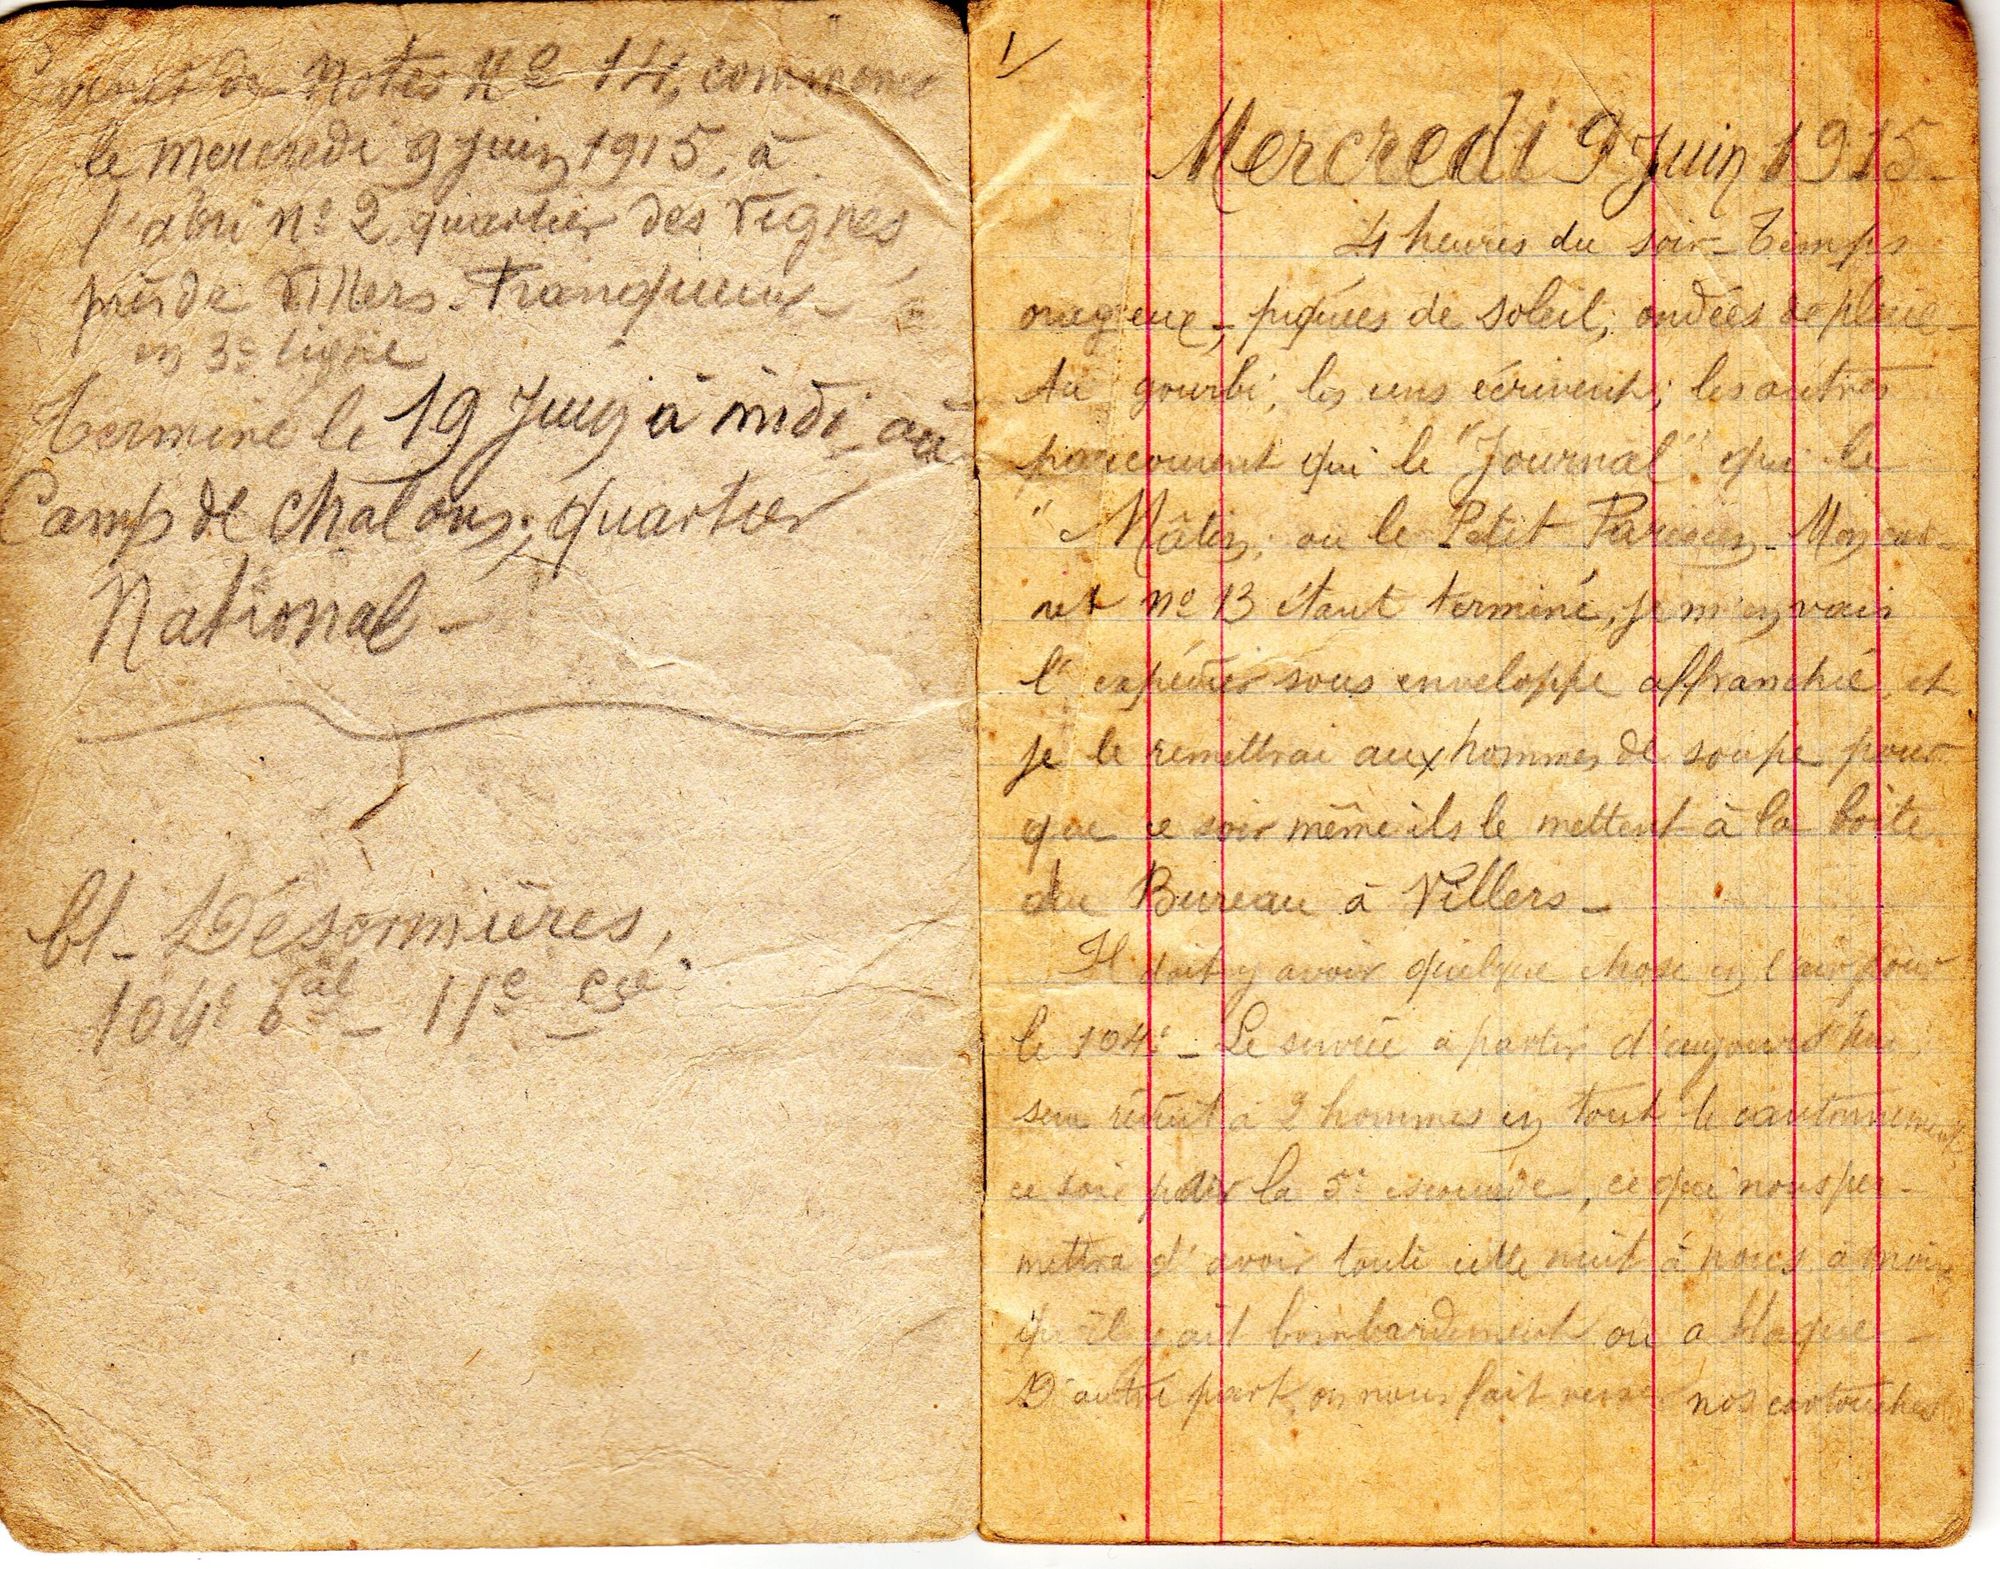 Carnet de Notes No 14, commencé
le mercredi 9 juin 1915, à
l'abri no 2 quartier des Vignes,
près de Villers-Franqueux -
en 3e ligne
Terminé le 19 Juin à midi au
Camp de Chalons, quartier
National -
bt - Désormières,
104e bal - 11e cie
1
Mercredi 9 Juin 1915 -
4 heures du soir - Temps
orageux -, piqûres de soleil; ondées de pluie -
Au gourbi, les uns écrivent; les autres
parcourent qui le "Journal" qui le
"Mâtin, ou le Petit Parisien - Mon car-
net no 13 étant terminé, je m'en vais
l'expédier sous enveloppe affranchie et
je le remettrai aux hommes de soupe pour
que ce soir même ils le mettent à la boîte
du Bureau à Villers -
Il doit y avoir quelque chose en l'air pour
le 104e - Le service à partir d'aujourd'hui
sera réduit à 2 hommes en tout le cantonnement
ce soir pour la 5e escouade, ce qui nous per-
mettra d'avoir toute cette nuit à nous à moins
qu'il y ait bombardement ou attaque -
D'autre part, on nous fait verser nos cartouches